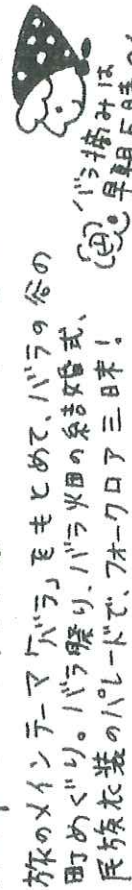 旅のメインテーマ「バラ」をもとめて、バラの谷の
町めぐり。バラ祭り、バラ畑の結婚式、
民族衣装のパレードで、フォークロア三昧!
バラ摘みは
早朝5時